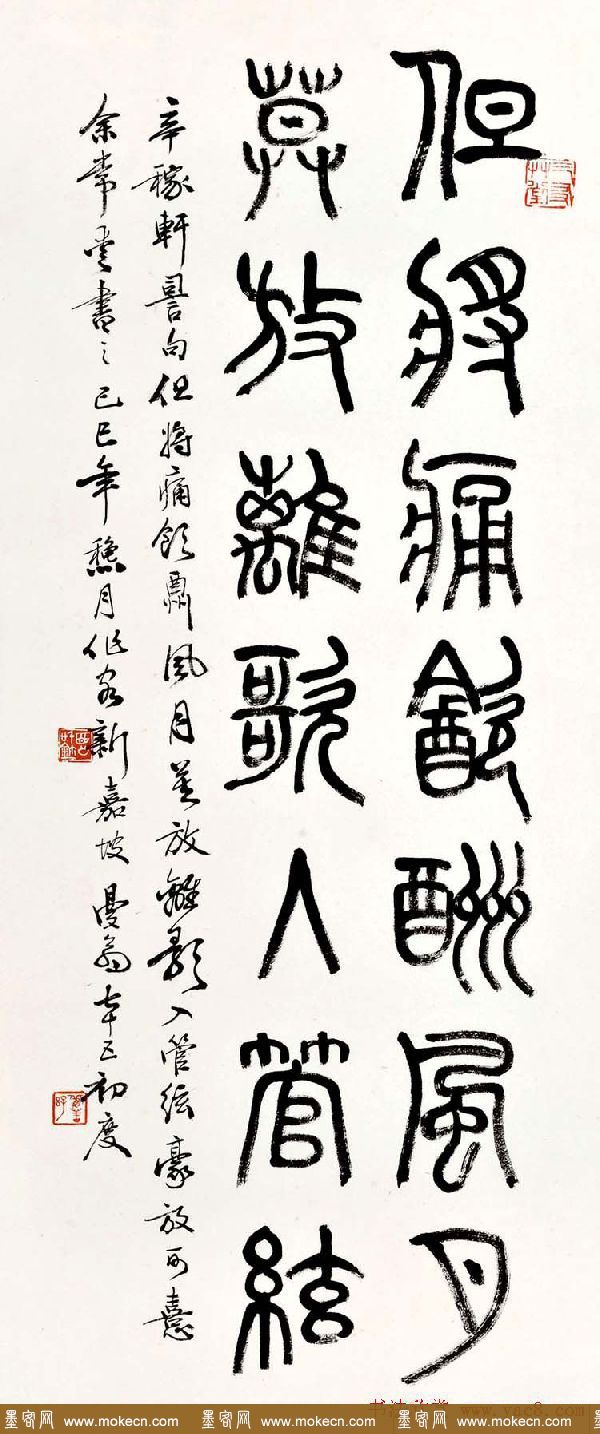 但將痛飲酬風月
莫放離歌入管絃
辛稼軒詈句但將痛飲酬風月莫放離歌入管絃豪放可憙
余常喜書之己巳年龝月作客新嘉坡曼翁年七五初度
墨客网 www.mokecn.com 墨客网 www.mokecn.com 墨客网 www.mokecn.com